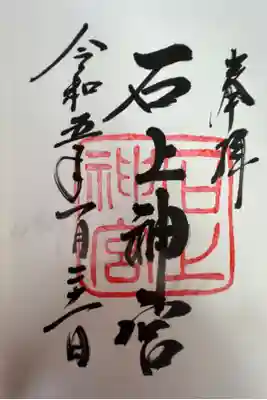 奉拝
石上神宮
石上神宮
令和五年一月三一日